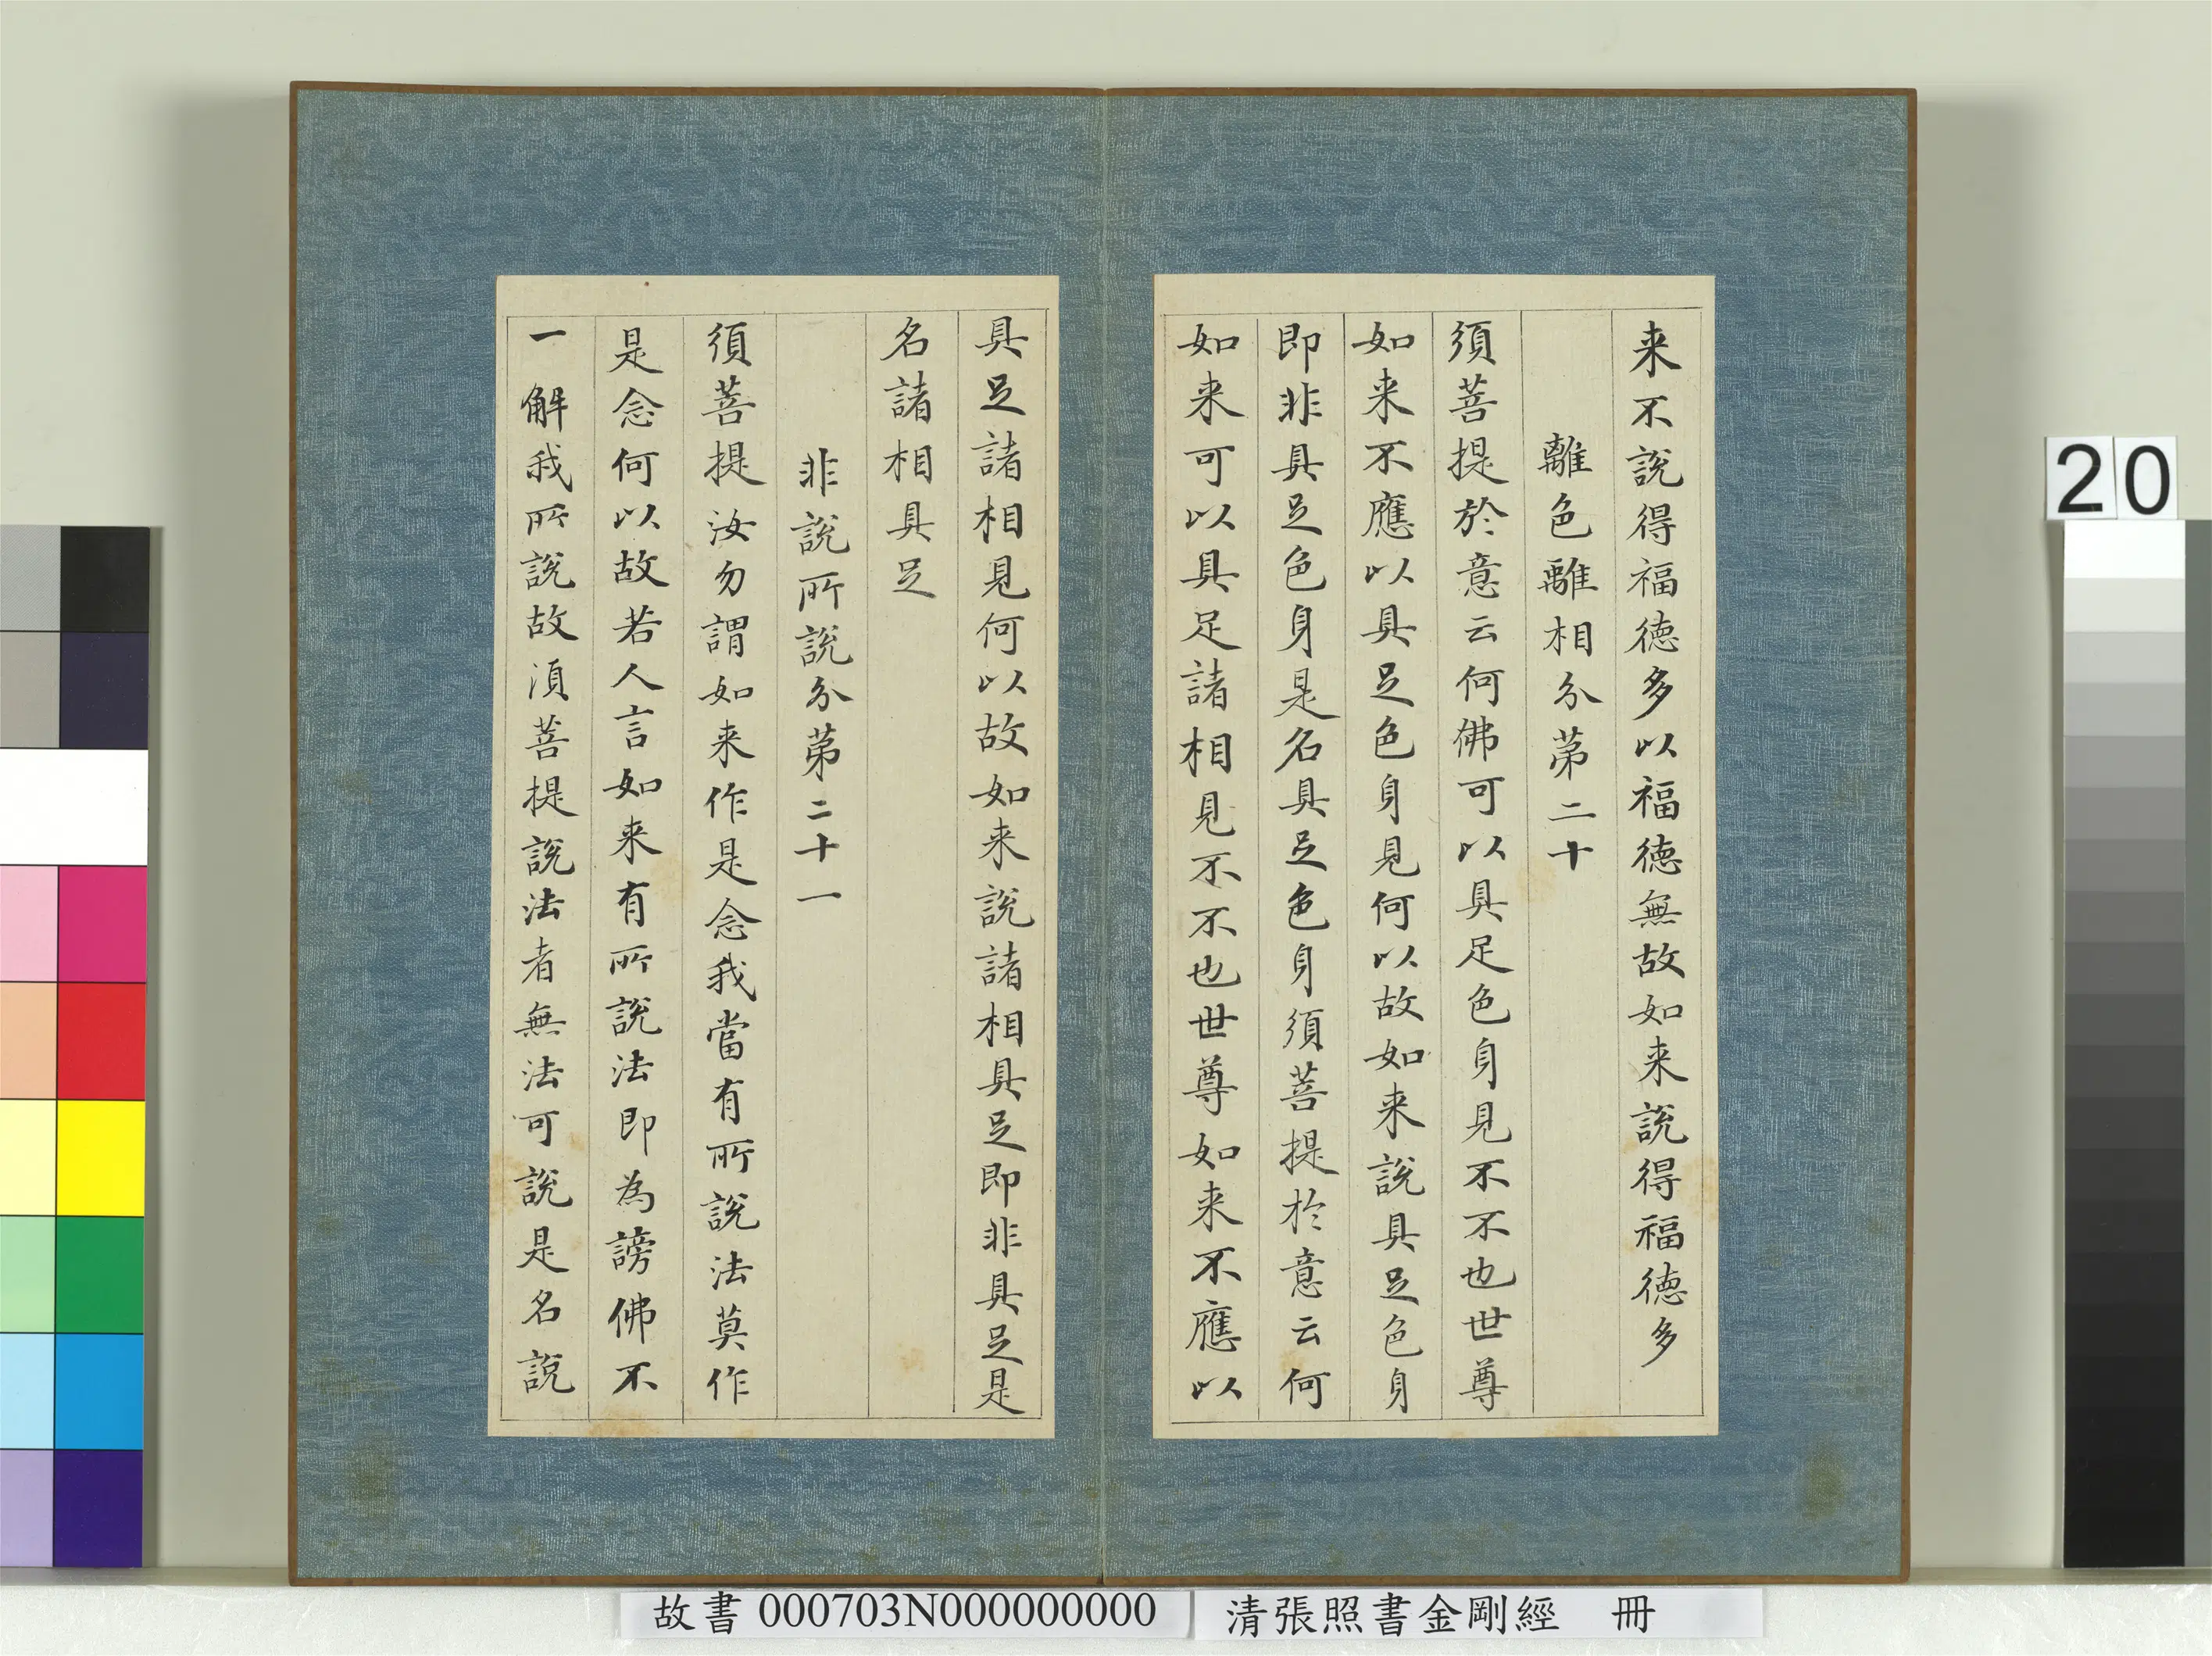 来不說得福德多以福德無故如来說得福德多
離色離相分第二十
須菩提於意云何佛可以具足色身見不不也世尊
如来不應以具足色身見何以故如来說具足色身
即非具足色身是名具足色身須菩提於意云何
如来可以具足諸相見不不也世尊如来不應以
具足諸相見何以故如来說諸相具足即非具足是
名諸相具足
非說所說分第二十一
須菩提汝勿謂如来作是念我當有所說法莫作
是念何以故若人言如来有所說法即為謗佛不
一解我所說故須菩提說法者無法可說是名說
20
故書 000703N000000000
清張照書金剛經 冊